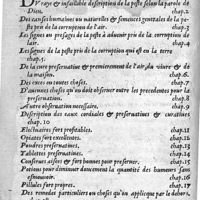 Vraye & infaillible description de la peste selon la parole de
Dieu. chap.2
Des causes humaines ou naturelles & semences generalles de la peste
prins de la corruption de l'air. chap.3
Les signes ou presages de la peste à aduenir prins de la corruption de
l'air. chap.4
Les signes de la peste prins de la corruption qui est en la terre
chap.5
De la cure preseruatiue & premierement de l'air, du viure & de
la maison. chap.6
Des exces en toutes choses. chap.7
D'aucunes choses qu'on doit auoir entre les precedentes pour la
preseruation. chap.8
Autre obseruation necessaire. chap.9
Description des eaux cordiales & preseruatiues & curatiues
chap. 10
Electuaires fort profitables. chap.11
Opiates excellentes. chap.12
Poudres preseruatiues. chap.13
Tablettes preseruatiues. chap.14
Conserues aisees & fort bonnes pour preseruer. chap.15
Potions pour diminuer doucement la quantité des humeurs sans
esmouuement. chap.16
Pillules fort propres. chap.17
Des remedes particuliers ou choses qu'on applique par le dehors.